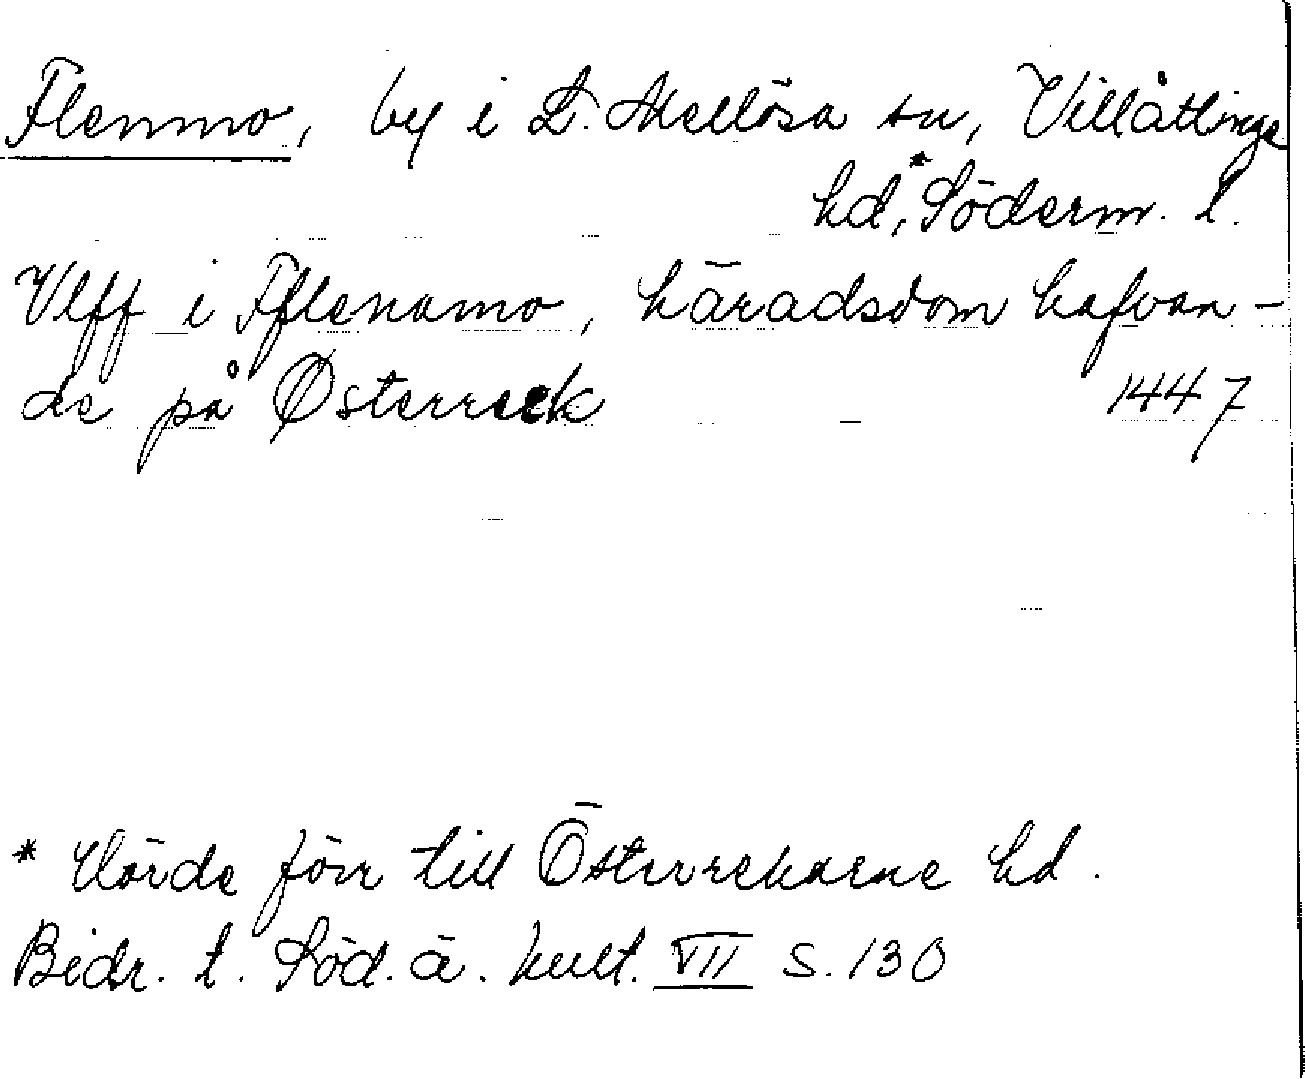 Flenmo, by i L. Mellösa sn, Villåttinge
hd,* Söderm. l.
Vlff i Fflenamo, häradsdom hafvan-
de på Østerreek 1447
* Hörde förr till Österrekarne hd.
Bidr. t. Söd. ä. kult. VII s. 130